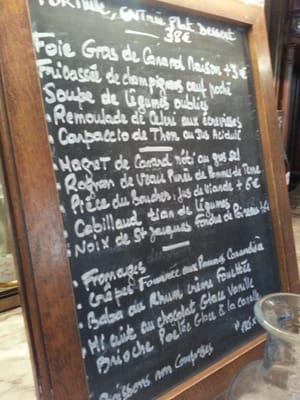 FORMULE, Entrée Plat Dessert
38€
Foie Gras de Canard Maison +3€
Fricassée de champignons oeuf poché
Soupe de légumes oubliés
• Remoulade de Céleri aux écrevisses
• Carpaccio de Thon au Jus Acidulé
• Magret de Canard rôti au gros sel
• Rognon de Veau Purée de Pommes de Terre
• Pièce du Boucher, jus de viande + 6€
• Cabillaud tian de légumes
• Noix de St Jacques fondue de Poireaux
• Fromages
• Crêpes Fourrées aux Pommes
• Baba au Rhum crème Fouettée
• Mi cuit au chocolat Glace Vanille
Brioche Perdue Glace à la
Boissons non Comprises